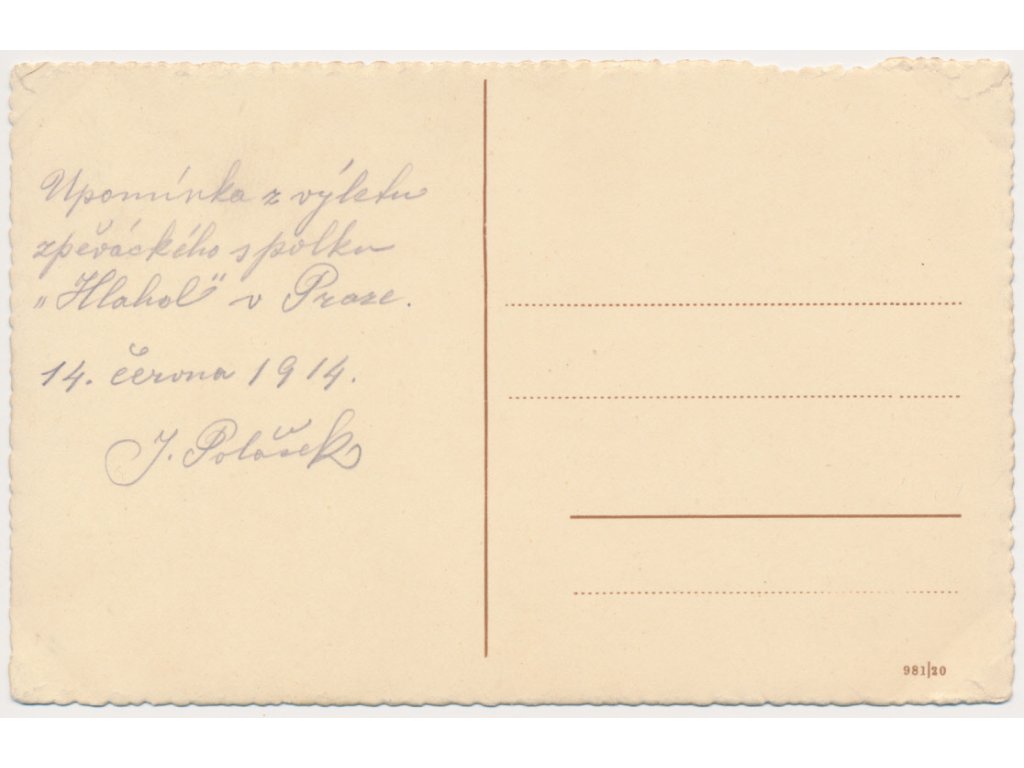 Upomínka z výletu
zpěváckého spolku
„Hlahol" v Praze.
14. června 1914.
J. Polášek
981/20